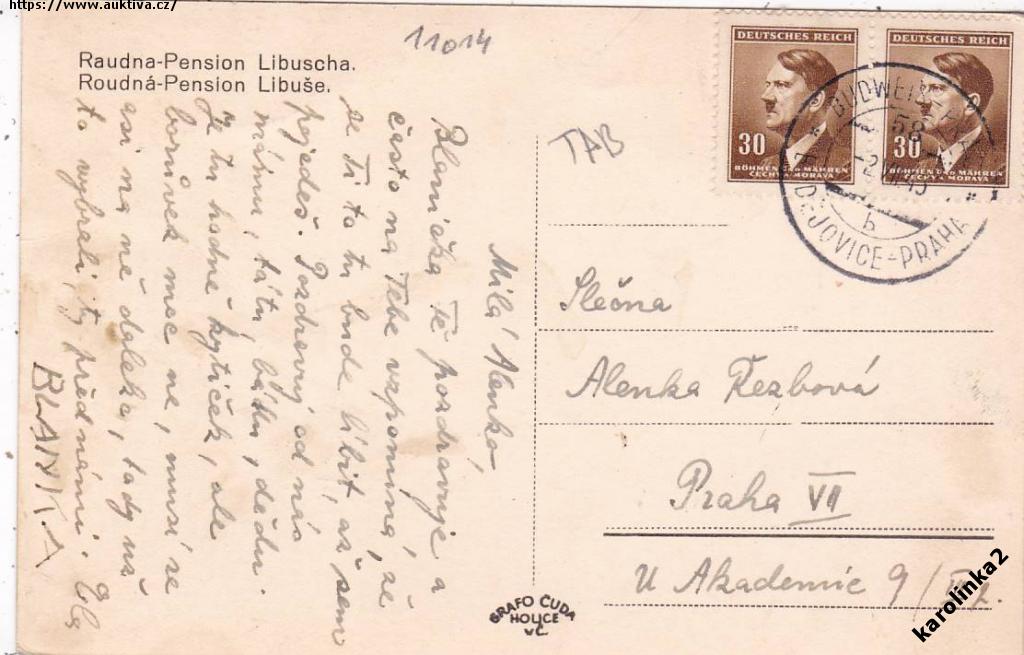 https://www.auktiva.cz/
11014
Raudna-Pension Libuscha.
Roudná-Pension Libuše.
TAB
DEUTSCHES REICH
30
BÖHMEN UND MÄHREN
ČECHY A MORAVA
DEUTSCHES REICH
30
BÖHMEN UND MÄHREN
ČECHY A MORAVA
BUDWEIS
58
b
DĚJOVICE-PRAHA
Milá Alenko,
Blanička Tě pozdravuje a
často na Tebe vzpomíná, že
se Ti to tu bude líbit, až sem
pojedeš. Pozdravuj od nás
mámu, tátu, bábu, dědu.
Je tu hodně kytiček, ale
borůvek moc ne, musí se
asi na ně daleko, tady už
to vybrali, ty před námi.
BLANKA
Slečna
Alenka Řezbová
Praha VII
U Akademie 9
GRAFO ČUDA
HOLICE
v Č.
karolinka2